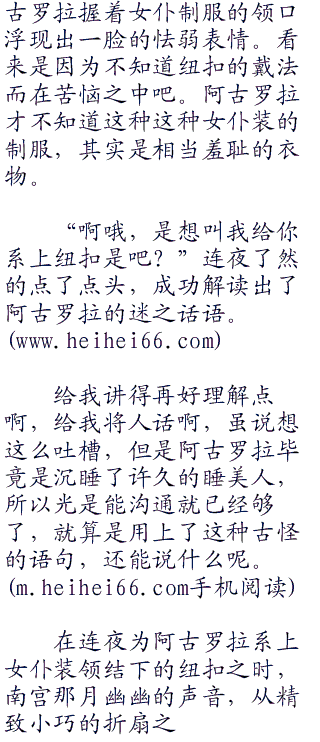 古罗拉握着女仆制服的领口
浮现出一脸的怯弱表情。看
来是因为不知道纽扣的戴法
而在苦恼之中吧。阿古罗拉
才不知道这种这种女仆装的
制服，其实是相当羞耻的衣
物。
“啊哦，是想叫我给你
系上纽扣是吧？”连夜了然
的点了点头，成功解读出了
阿古罗拉的迷之话语。
(www.heihei66.com)
给我讲得再好理解点
啊，给我将人话啊，虽说想
这么吐槽，但是阿古罗拉毕
竟是沉睡了许久的睡美人，
所以光是能沟通就已经够
了，就算是用上了这种古怪
的语句，还能说什么呢。
(m.heihei66.com手机阅读)
在连夜为阿古罗拉系上
女仆装领结下的纽扣之时，
南宫那月幽幽的声音，从精
致小巧的折扇之